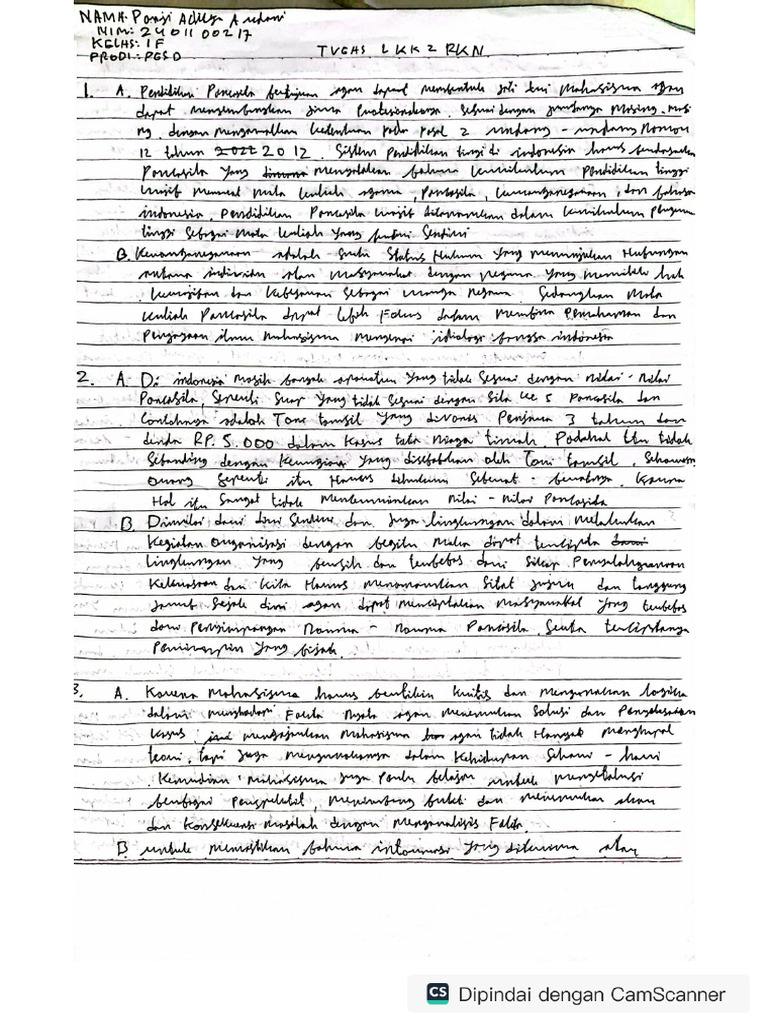 NAMA: Panji Aditya A
NIM: 2401100217
KELAS: 1F
PRODI: PGSD
TUGAS LKK 2 PKN
1. A. Pendidikan Pancasila bertujuan agar dapat membentuk jati diri Mahasiswa agar
dapat mengembangkan jiwa sesuai dengan masing-masi
ng, dengan mengamalkan ketentuan pada Pasal 2 undang-undang Nomor
12 tahun 2012. Sistem Pendidikan tinggi di indonesia harus berdasarkan
Pancasila yang menyatakan bahwa kurikulum Pendidikan tinggi
wajib memuat mata kuliah agama, Pancasila, kewarganegaraan, dan bahasa
indonesia, Pendidikan Pancasila wajib dalam kurikulum
tinggi sebagai mata kuliah yang Sendiri
B. Kewarganegaraan adalah suatu Status Hukum yang menunjukan Hubungan
antara individu dengan negara yang memiliki hak
kewajiban dan sebagai warga negara. Sedangkan Mata
kuliah Pancasila dapat lebih Fokus dalam membina Pemahaman dan
ilmu mahasiswa mengenai idiologi bangsa indonesia
2. A. Di indonesia masih banyak yang tidak sesuai dengan nilai-nilai
Pancasila, Seperti Suap yang tidak sesuai dengan Sila ke 5 Pancasila dan
Contohnya adalah Toni tamsil yang divonis Penjara 3 tahun dan
denda RP. 5.000 dalam kasus tata niaga timah. Padahal itu tidak
Sebanding dengan Kerugian yang disebabkan oleh Toni tamsil, Seharusnya
orang seperti itu Harus dihukum Seberat-beratnya. Karena
Hal itu Sangat tidak mencerminkan Nilai-Nilai Pancasila
B. Dimulai dari diri Sendiri dan juga lingkungan dalam melakukan
Kegiatan organisasi dengan begitu maka dapat tercipta
Lingkungan yang bersih dan terbebas dari Sikap Penyalahgunaan
Kekuasaan dan kita Harus menanamkan Sifat jujur dan tanggung
jawab Sejak dini agar dapat menciptakan masyarakat yang terbebas
dari Penyimpangan Norma-Norma Pancasila, Serta terciptanya
Pemimpin yang bijak.
3. A. Karena mahasiswa harus berfikir kritis dan mengunakan logika
dalam menghadapi Fakta Nyata agar menemukan Solusi dan Penyelesaian
kasus, mengajarkan mahasiswa agar tidak Hanya menghapal
teori, tapi juga mengunakanya dalam Kehidupan Sehari-hari
Kemudian mahasiswa juga Perlu belajar untuk mengevaluasi
berbagai Perspektif, menimbang bukti dan menemukan akar
dan Konsekuensi masalah dengan menganalisis Fakta.
B. untuk memastikan bahwa informasi yang diterima atau
CS Dipindai dengan CamScanner